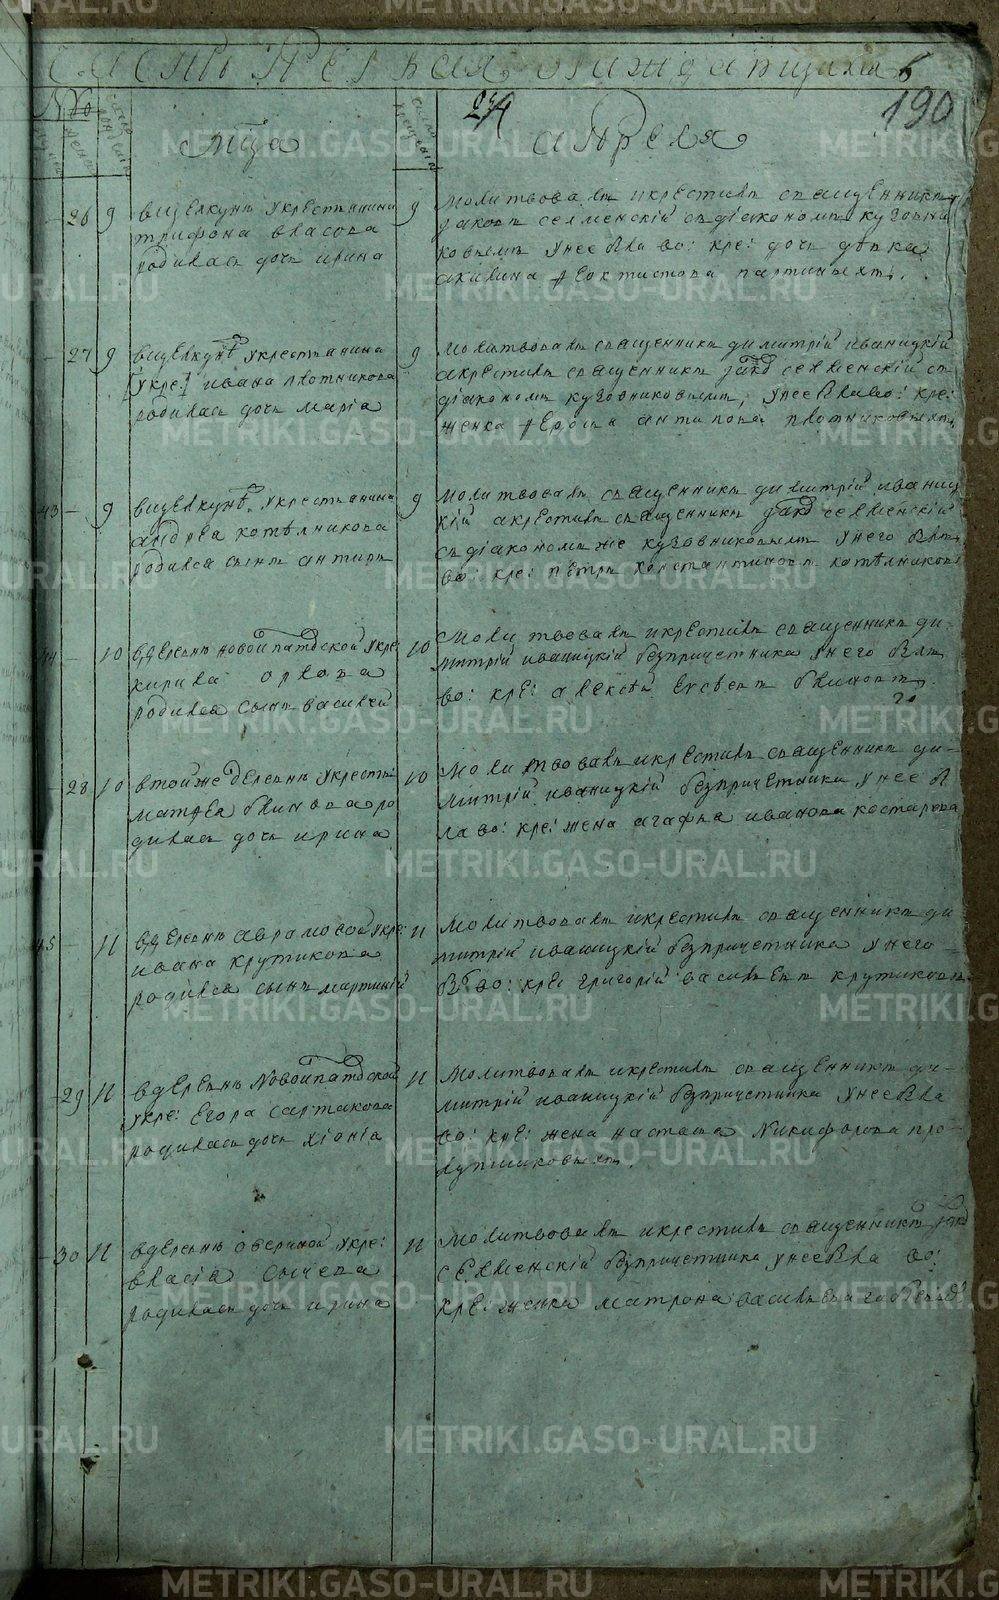 часть перьвая, о раждающихся
6
190
№
24
мца
апреля
число рожденiя
число крещенiя
26 9 вщелкунѣ укрестьянина
трифона власова
родилась дочь ирина
9 молитвовалъ икрестилъ священникъ
iаковъ селменскiй сдiакономъ кузовни
ковымъ унее была во: кре: дочь дѣвка
акилина феоктистова
27 9 вщелкунѣ укрестьянина
[укре:] ивана плотникова
родилась дочь марiа
9 молитвовалъ священникъ димитрiй иваницкiй
акрестилъ священникъ iаковъ селменскiй съ
дiакономъ кузовниковымъ, унее была во: кре:
женка антипова плотниковыхъ
43 9 вщелкунѣ, укрестьянина
андреа котѣлникова
родился сынъ антипъ
9 молитвовалъ священникъ димитрiй иваниц
кiй акрестилъ священникъ iаковъ селменскiй
сдiакономъ же кузовниковымъ унего былъ
во: кре: петръ констаантиновъ котѣлниковъ
44 10 вдеревнѣ новоипатовской укре:
кирила орлова
родился сынъ василей
10 молитвовалъ икрестилъ священникъ ди-
митрiй иваницкiй безпричетника унего былъ
во: кре: алексѣй блиновъ
28 10 втойже деревнѣ укрестья:
матѳеа блинова ро
дилась дочь ирина
10 молитвовалъ икрестилъ священникъ ди-
митрiй иваницкiй безпричетника унее б
ла во: кре: жена агафья иванова костарева
45 11 вдеревнѣ аврамовой укре:
ивана крутикова
родился сынъ мартинiй
11 молитвовалъ икрестилъ священникъ ди
митрiй иваницкiй безпричетника унего
былъ во: кре: григорiй васильевъ крутиковъ
29 11 вдеревнѣ новоипатовской
укре: егора сартакова
родилась дочь хiонiа
11 молитвовалъ икрестилъ священникъ ди-
митрiй иваницкiй безпричетника унее была
во: кре: жена настасья никифорова
30 11 вдеревнѣ овериной укре:
власiа сычева
родилась дочь ирина
11 молитвовалъ икрестилъ священникъ iаковъ
селменскiй безпричетника унее была во:
кре: женка матрона васильева
METRIKI.GASO-URAL.RU